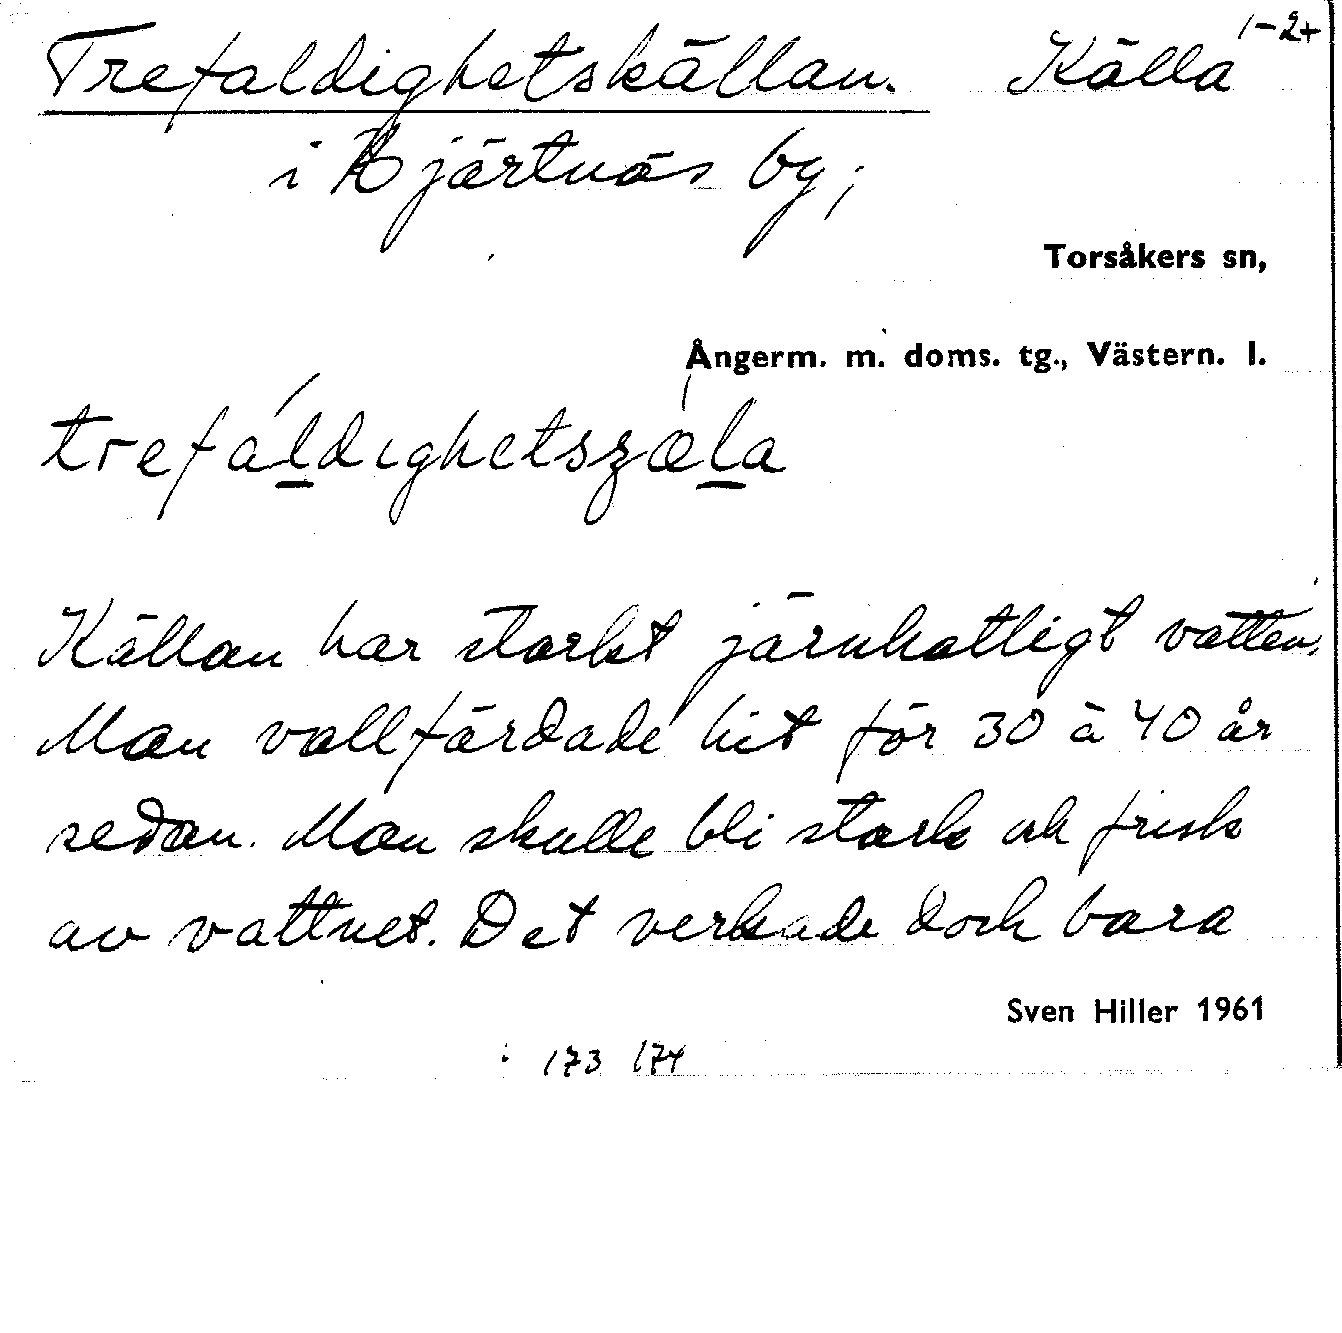 Trefaldighetskällan. Källa 1-2+
i Hjärtnäs by;
Torsåkers sn,
Ångerm. m. doms. tg., Västern. l.
trefáldıghetsʒæla
Källan har starkt järnhaltligt vatten.
Man vallfärdade hit för 30 à 40 år
sedan. Man skulle bli stark och frisk
av vattnet. Det verkade dock bara
Sven Hiller 1961
173 174